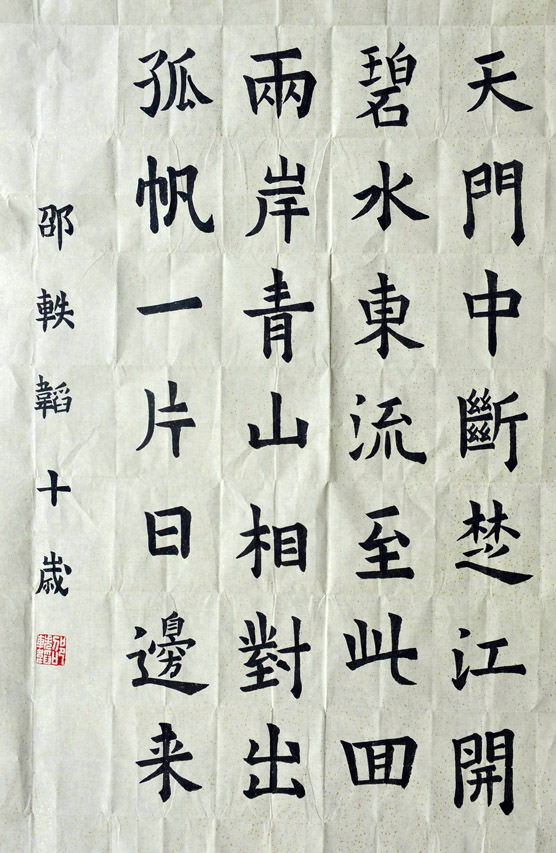 天門中斷楚江開
碧水東流至此回
兩岸青山相對出
孤帆一片日邊来
邵軼韜十歲